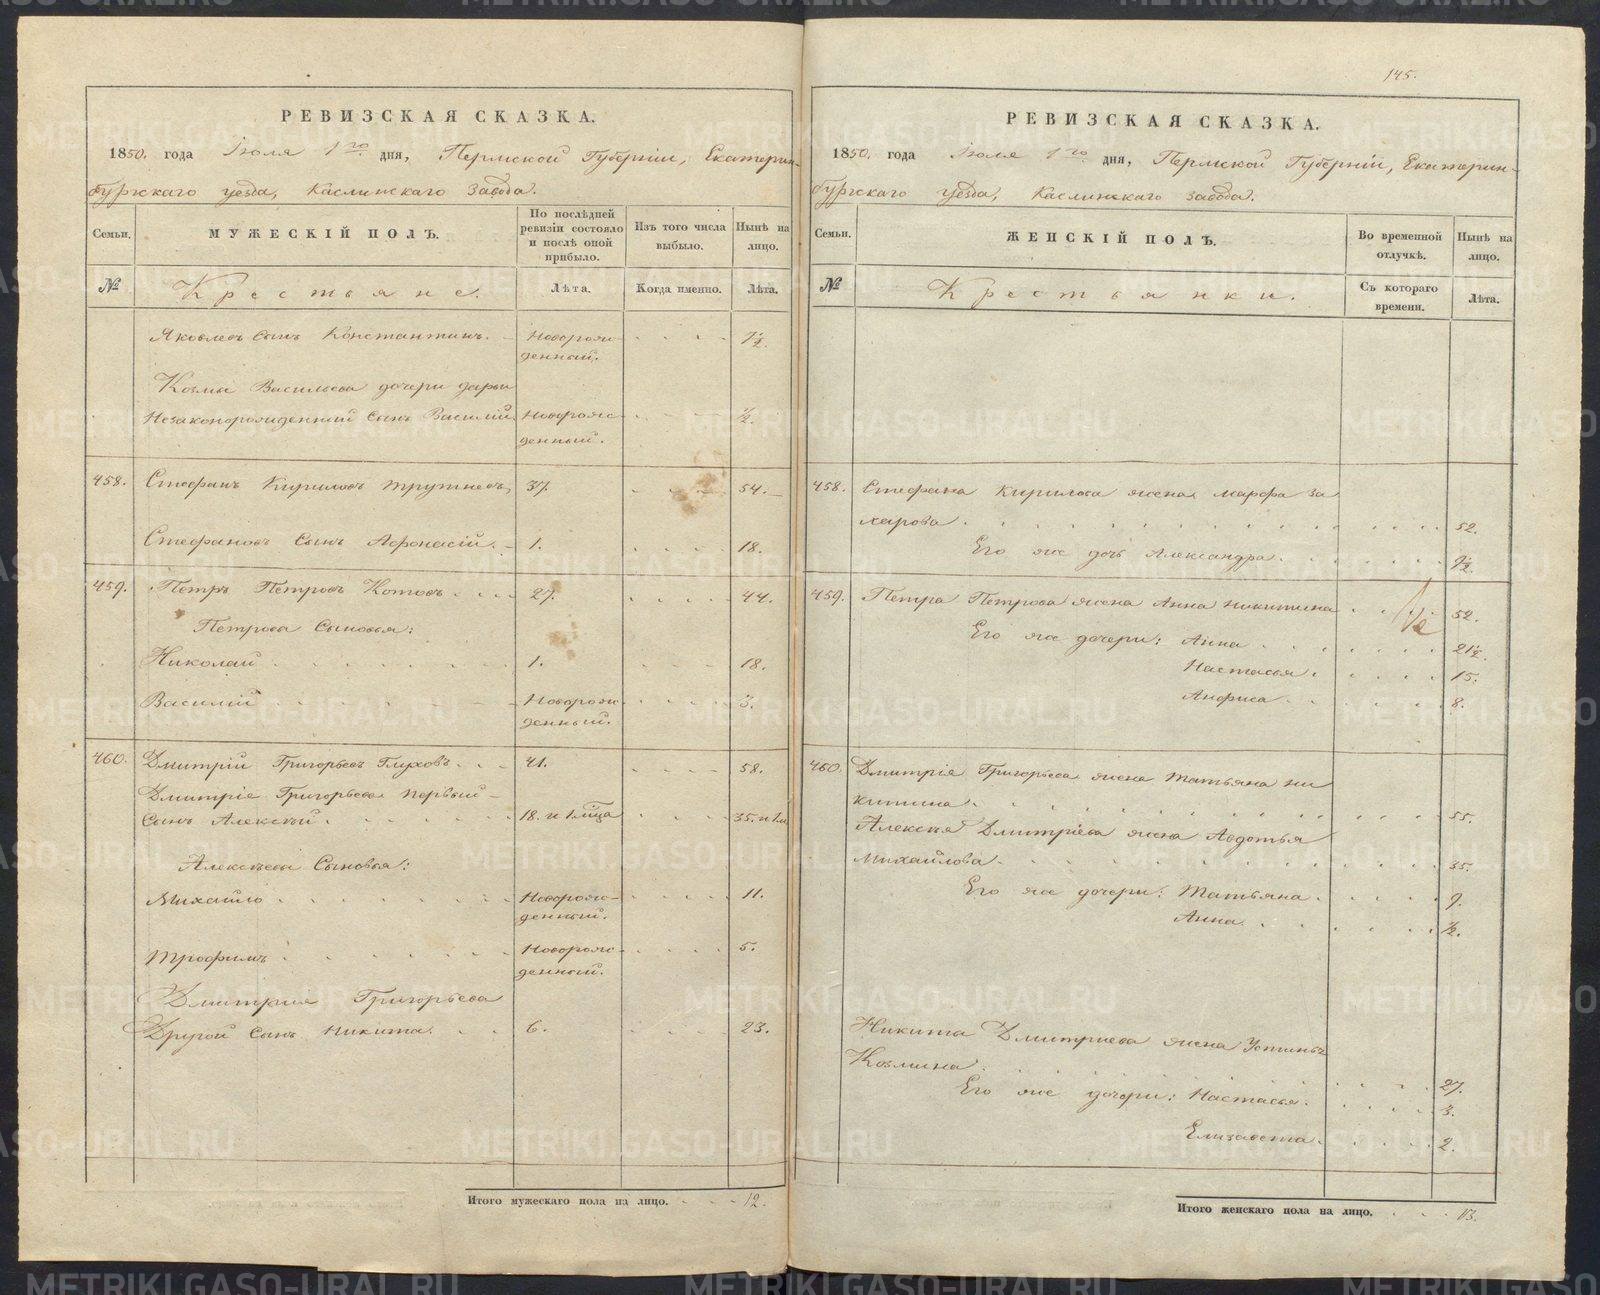 145.
РЕВИЗСКАЯ СКАЗКА.
1850. года Іюля 1го. дня, Пермской Губерніи, Екатерин-
бургскаго уезда, Каслинскаго Завода.
Семьи.
МУЖЕСКІЙ ПОЛЪ.
По послѣдней
ревизіи состояло
и послѣ оной
прибыло.
Изъ того числа
выбыло.
Нынѣ на
лицо.
№
Крестьяне.
Лѣта.
Когда именно.
Лѣта.
Яковлевъ сынъ Константинъ. Новорож-
денный. 1½.
Козмы Васильева дочери Дарьи
Незаконорожденный сынъ Василій. Новорож-
денный. ½.
458. Стефанъ Кириловъ Трутневъ, 37. 54.
Стефановъ сынъ Афонасій. 1. 18.
459. Петръ Петровъ Котовъ. 27. 44.
Петрова Сыновья:
Николай 1. 18.
Василій Новорож-
денный. 3.
460. Дмитрій Григорьевъ Глуховъ. 41. 58.
Дмитріе Григорьева первый
Сынъ Алексѣй. 18. и 1 м̃ца 35. и 1 м.
Алексѣевы Сыновья:
Михайло Новорож-
денный. 11.
Трофимъ Новорож-
денный. 5.
Дмитрия Григорьева
Другой сынъ Никита. 6. 23.
Итого мужескаго пола на лицо. 12.
РЕВИЗСКАЯ СКАЗКА.
1850. года Іюля 1го. дня, Пермской Губерніи, Екатерин-
бургскаго уезда, Каслинскаго завода.
Семьи.
ЖЕНСКІЙ ПОЛЪ.
Во временной
отлучкѣ.
Нынѣ на
лицо.
№
Крестьянки.
Съ котораго
времени.
Лѣта.
458. Стефана Кирилова жена Марфа За
харова. 52.
Его же дочь Александра. 9½.
459. Петра Петрова жена Анна Никитина 52.
Его же дочери: Анна 21½.
Настасья. 15.
Анфиса. 8.
460. Дмитрія Григорьева жена Татьяна Ни
китина. 55.
Алексѣя Дмитріева жена Авдотья
Михайлова. 35.
Его же дочери: Татьяна. 9.
Анна. ½.
Никиты Дмитриева жена Устинья
Козмина. 27.
Его же дочери: Настасья. 3.
Елизавета. 2.
Итого женскаго пола на лицо. 13.
METRIKI.GASO-URAL.RU